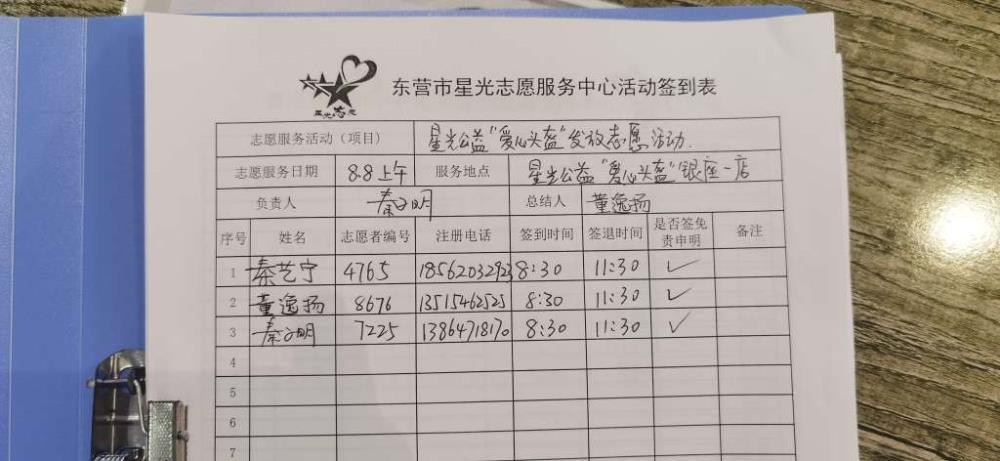 星光志愿
东营市星光志愿服务中心活动签到表
志愿服务活动（项目） 星光公益“爱心头盔”发放志愿活动.
志愿服务日期 8.8上午 服务地点 星光公益“爱心头盔”银座一店
负责人 秦子明 总结人 董逸扬
序号 姓名 志愿者编号 注册电话 签到时间 签退时间 是否签免责申明 备注
1 秦艺宁 4765 18562032923 8:30 11:30 ✓
2 董逸扬 8676 13515462525 8:30 11:30 ✓
3 秦子明 7225 13864718170 8:30 11:30 ✓
4
5
6
7